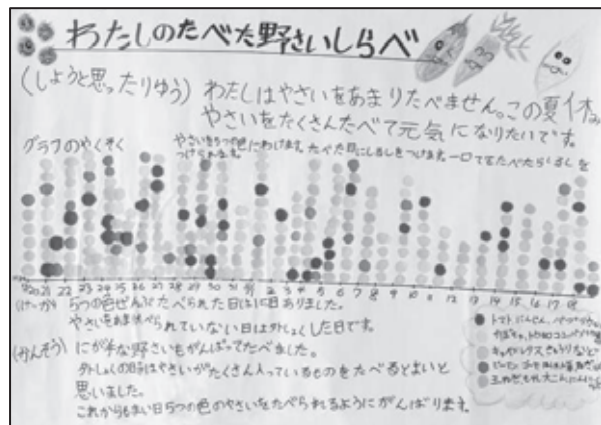 わたしのたべた野さいしらべ
(しようと思ったりゆう) わたしはやさいをあまりたべません。この夏休み
やさいをたくさんたべて元気になりたいです。
グラフのやくそく
やさいを5つの色にわけます。たべた日にしるしをつけます。一口でもたべたらしるしを
つけられます。
20 21 22 23 24 25 26 27 28 29 30 31 2 3 4 5 6 7 8 9 10 11 12 13 14 15 16 17 18
(けっか) 5つの色ぜんぶたべられた日は 日ありました。
やさいをあまりたべられていない日は外しょくした日です。
(かんそう) にが手な野さいもがんばってたべました。
外しょくの時はやさいがたくさん入っているものをたべるとよいと
思いました。
これからもまい日5つの色のやさいをたべられるようにがんばります。
トマト にんじん、
かぼちゃ、
キャベツ レタス きゅうりなど
ピーマン ゴーヤ
玉ねぎ もやし 大こん にんにく